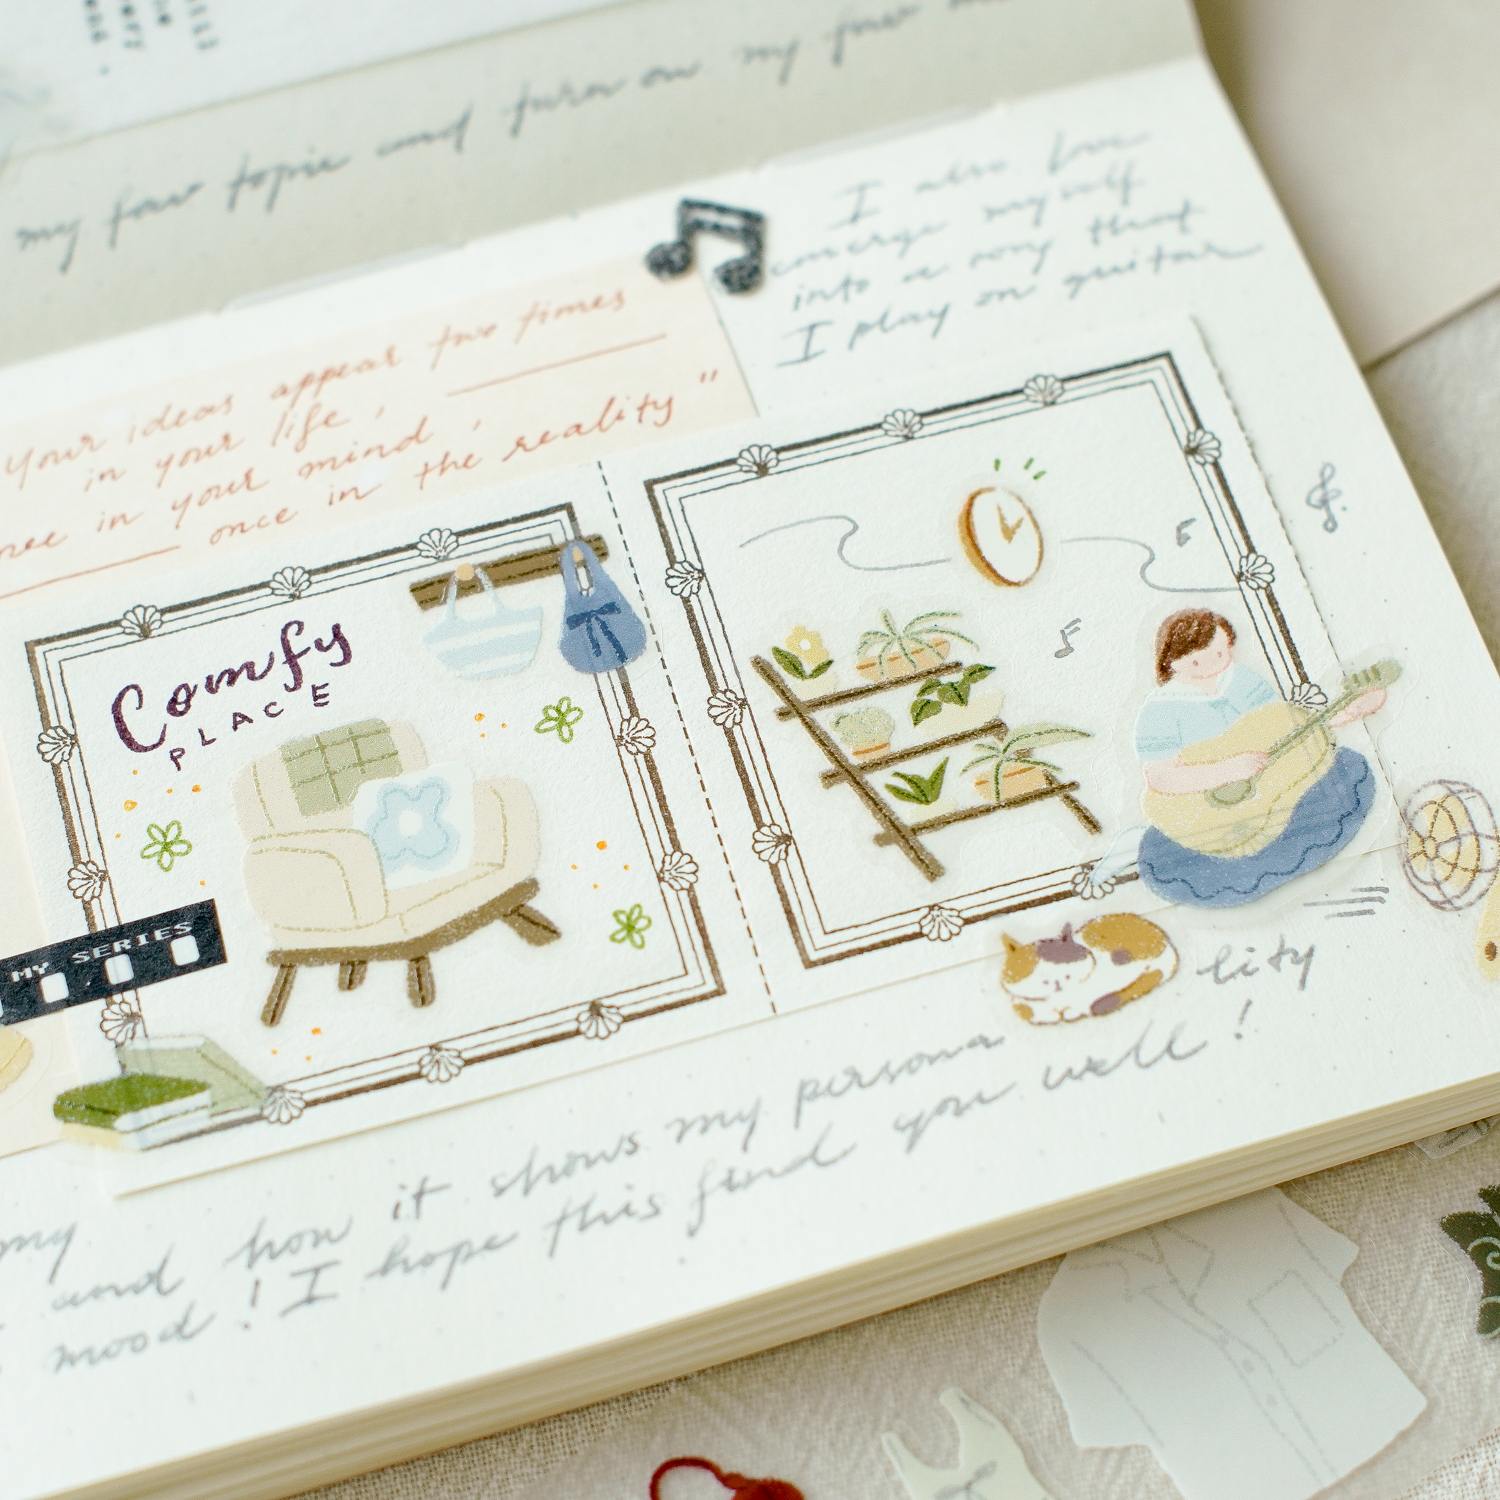 my fav topic and turn on my fav
I also love
emerge myself
into a song that
I play on guitar
Your ideas appear two times
in your life,
in your mind,
once in the reality"
Comfy
PLACE
MY SERIES
my
and how it shows my personality
mood! I hope this find you well!